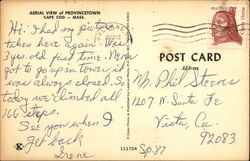 AERIAL VIEW of PROVINCETOWN
CAPE COD - MASS.
Hi. I had my picture
taken here again. Was
3 yrs. old first time. Never
got to go up in tower, it
was always closed. So
today we climbed all
166 steps.
See you when I
get back
Irene
POST CARD
Address
Mr. Phil Steens
1207 N. Santa Fe
Vista, Ca.
92083
K
111724